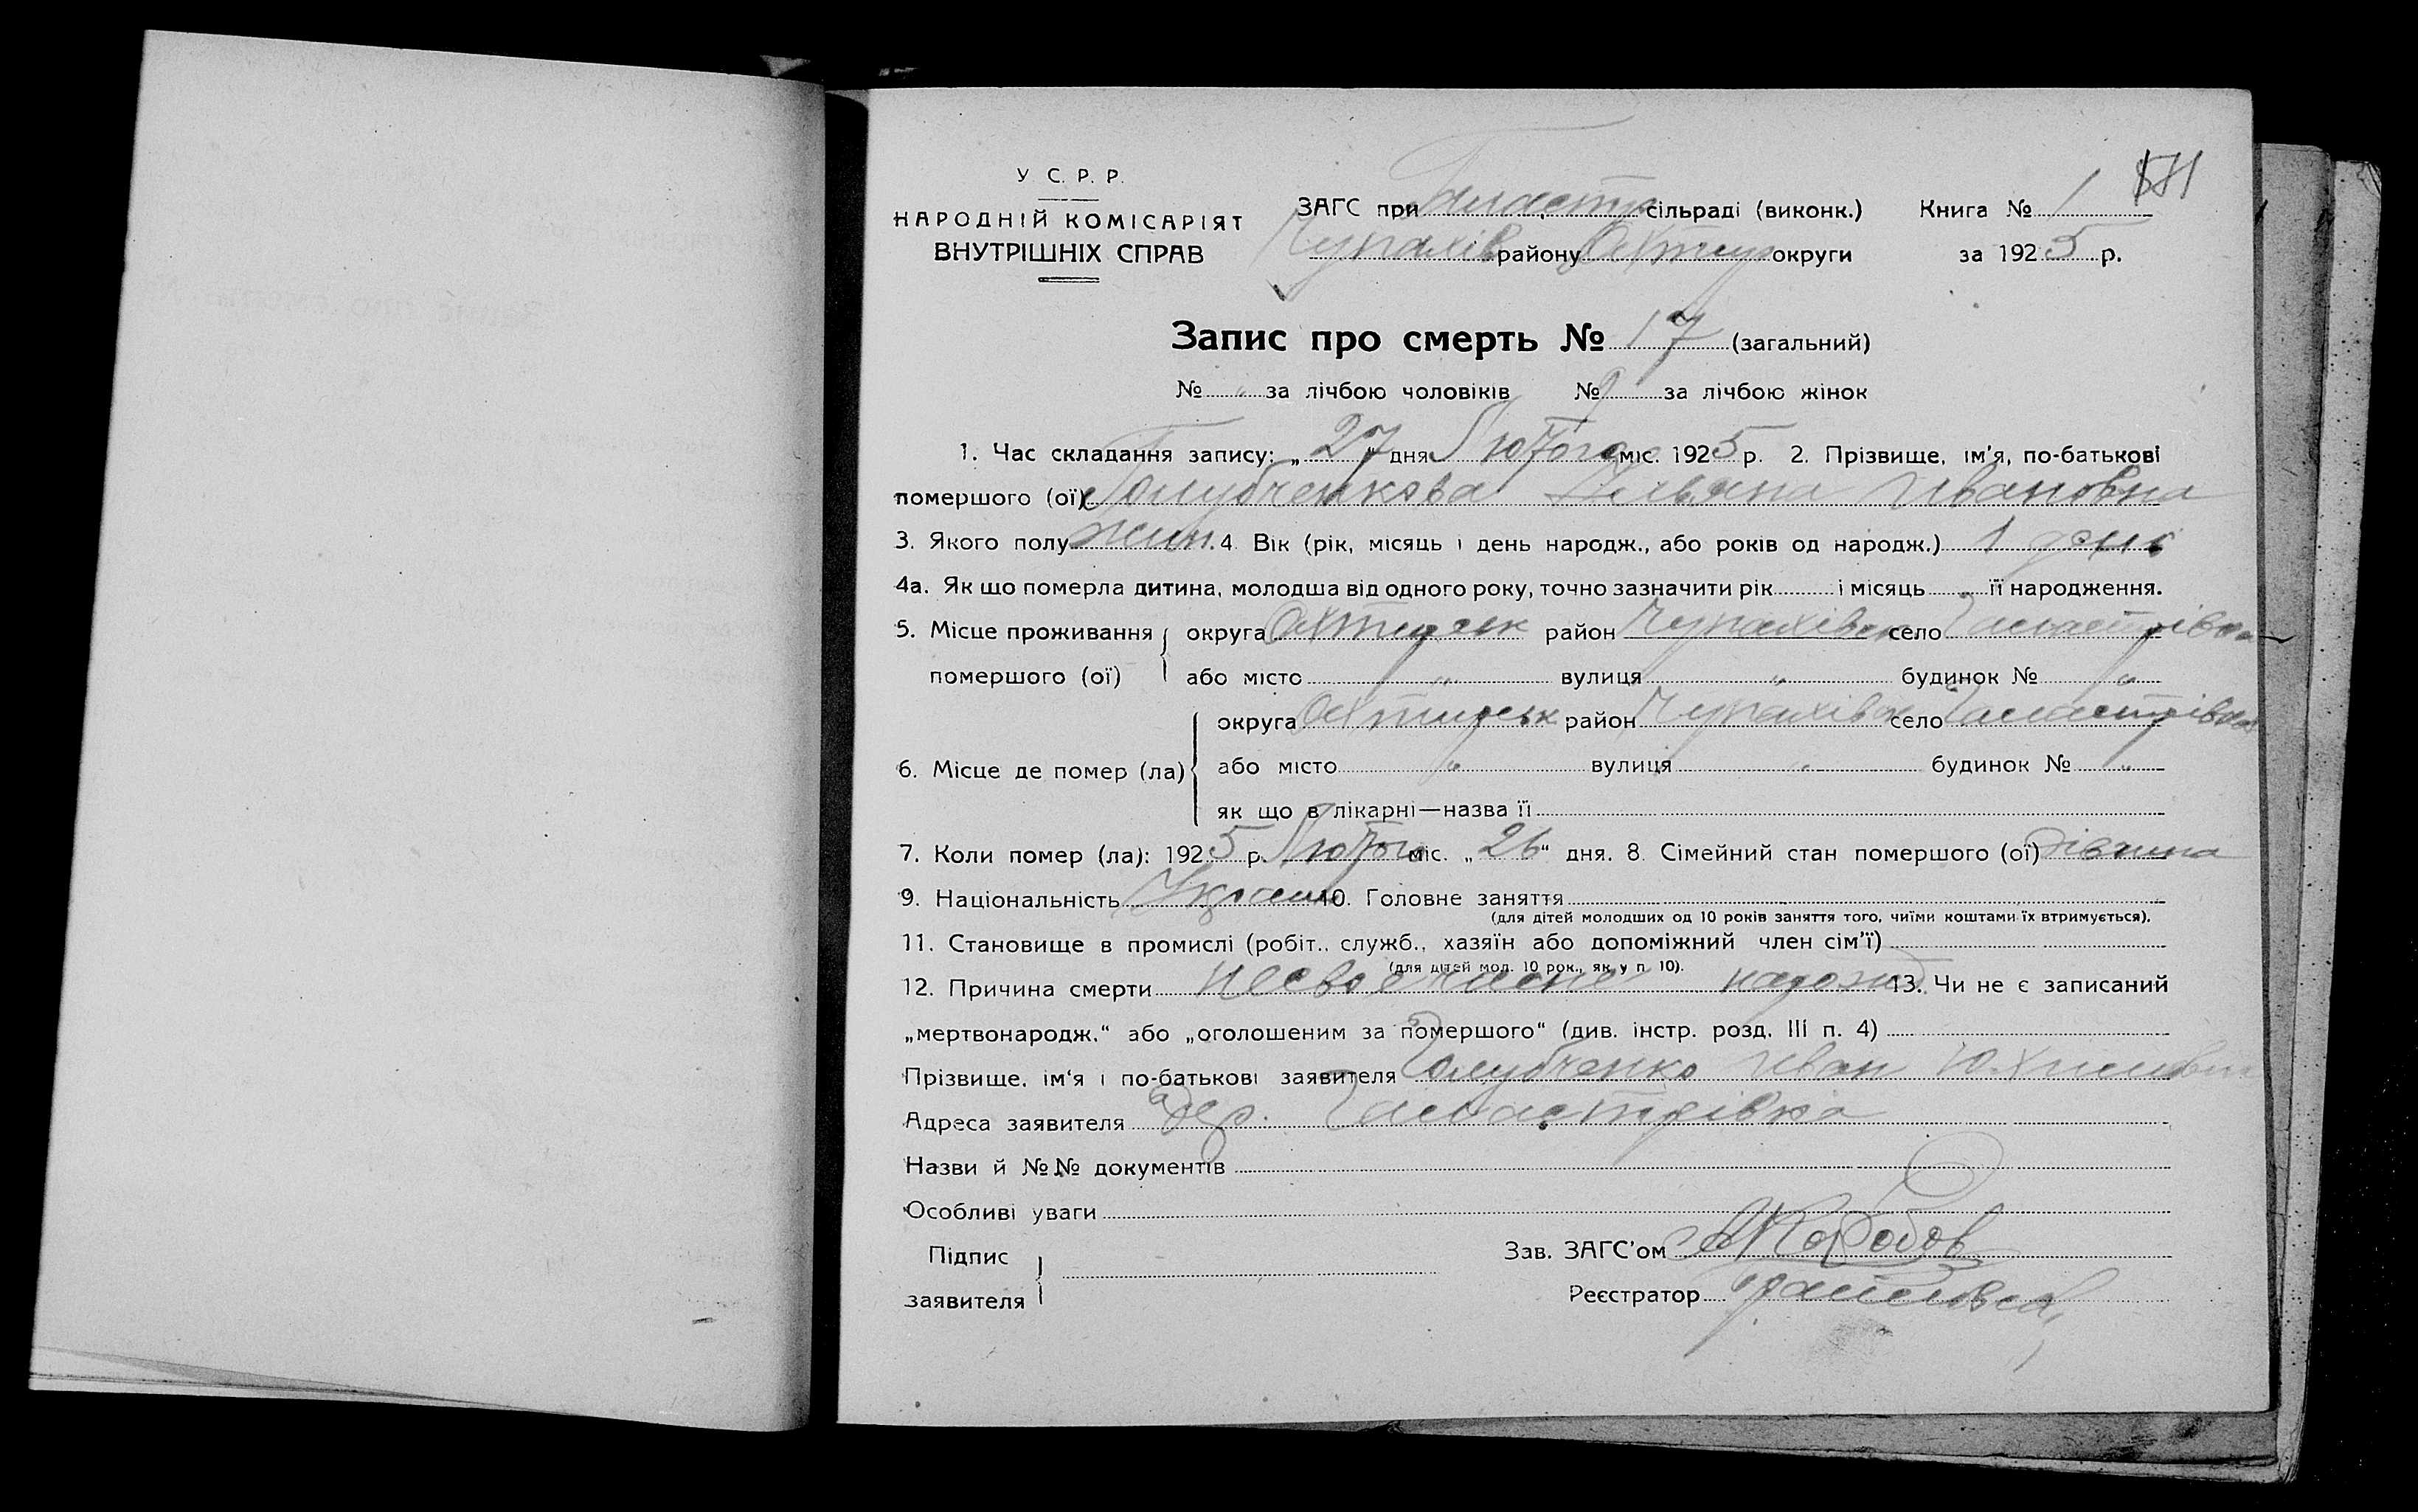 У С. Р. Р.
НАРОДНІЙ КОМІСАРІЯТ
ВНУТРІШНІХ СПРАВ
ЗАГС при сільраді (виконк.) Книга № 1
Чупахів району Охтир округи за 1925 р.
Запис про смерть № 17 (загальний)
№ „ за лічбою чоловіків № 9 за лічбою жінок
1. Час складання запису: „27" дня Лютого міс. 1925 р. 2. Прізвище, ім'я, по-батькові
помершого (ої) Голубченкова Ивановна
3. Якого полу жин. 4. Вік (рік, місяць і день народж., або років од народж.) 1 день
4а. Як що померла дитина, молодша від одного року, точно зазначити рік і місяць „ її народження.
5. Місце проживання округа Охтирськ район Чупахівськ село
помершого (ої) або місто „ вулиця „ будинок № „
округа Охтирськ район Чупахівськ село
6. Місце де помер (ла) або місто „ вулиця „ будинок № „
як що в лікарні—назва її
7. Коли помер (ла): 1925 р. Лютого міс. „26" дня. 8. Сімейний стан помершого (ої) дівчина
9. Національність 10. Головне заняття
(для дітей молодших од 10 років заняття того, чиїми коштами їх втримується).
11. Становище в промислі (робіт., служб., хазяїн або допоміжний член сім'ї)
(для дітей мол. 10 рок., як у п. 10).
12. Причина смерти несвоечасне 13. Чи не є записаний
„мертвонародж." або „оголошеним за помершого" (див. інстр. розд. III п. 4)
Прізвище, ім'я і по-батькові заявителя Голубченко Иван
Адреса заявителя
Назви й №№ документів
Особливі уваги
Підпис
заявителя
Зав. ЗАГС'ом
Реєстратор